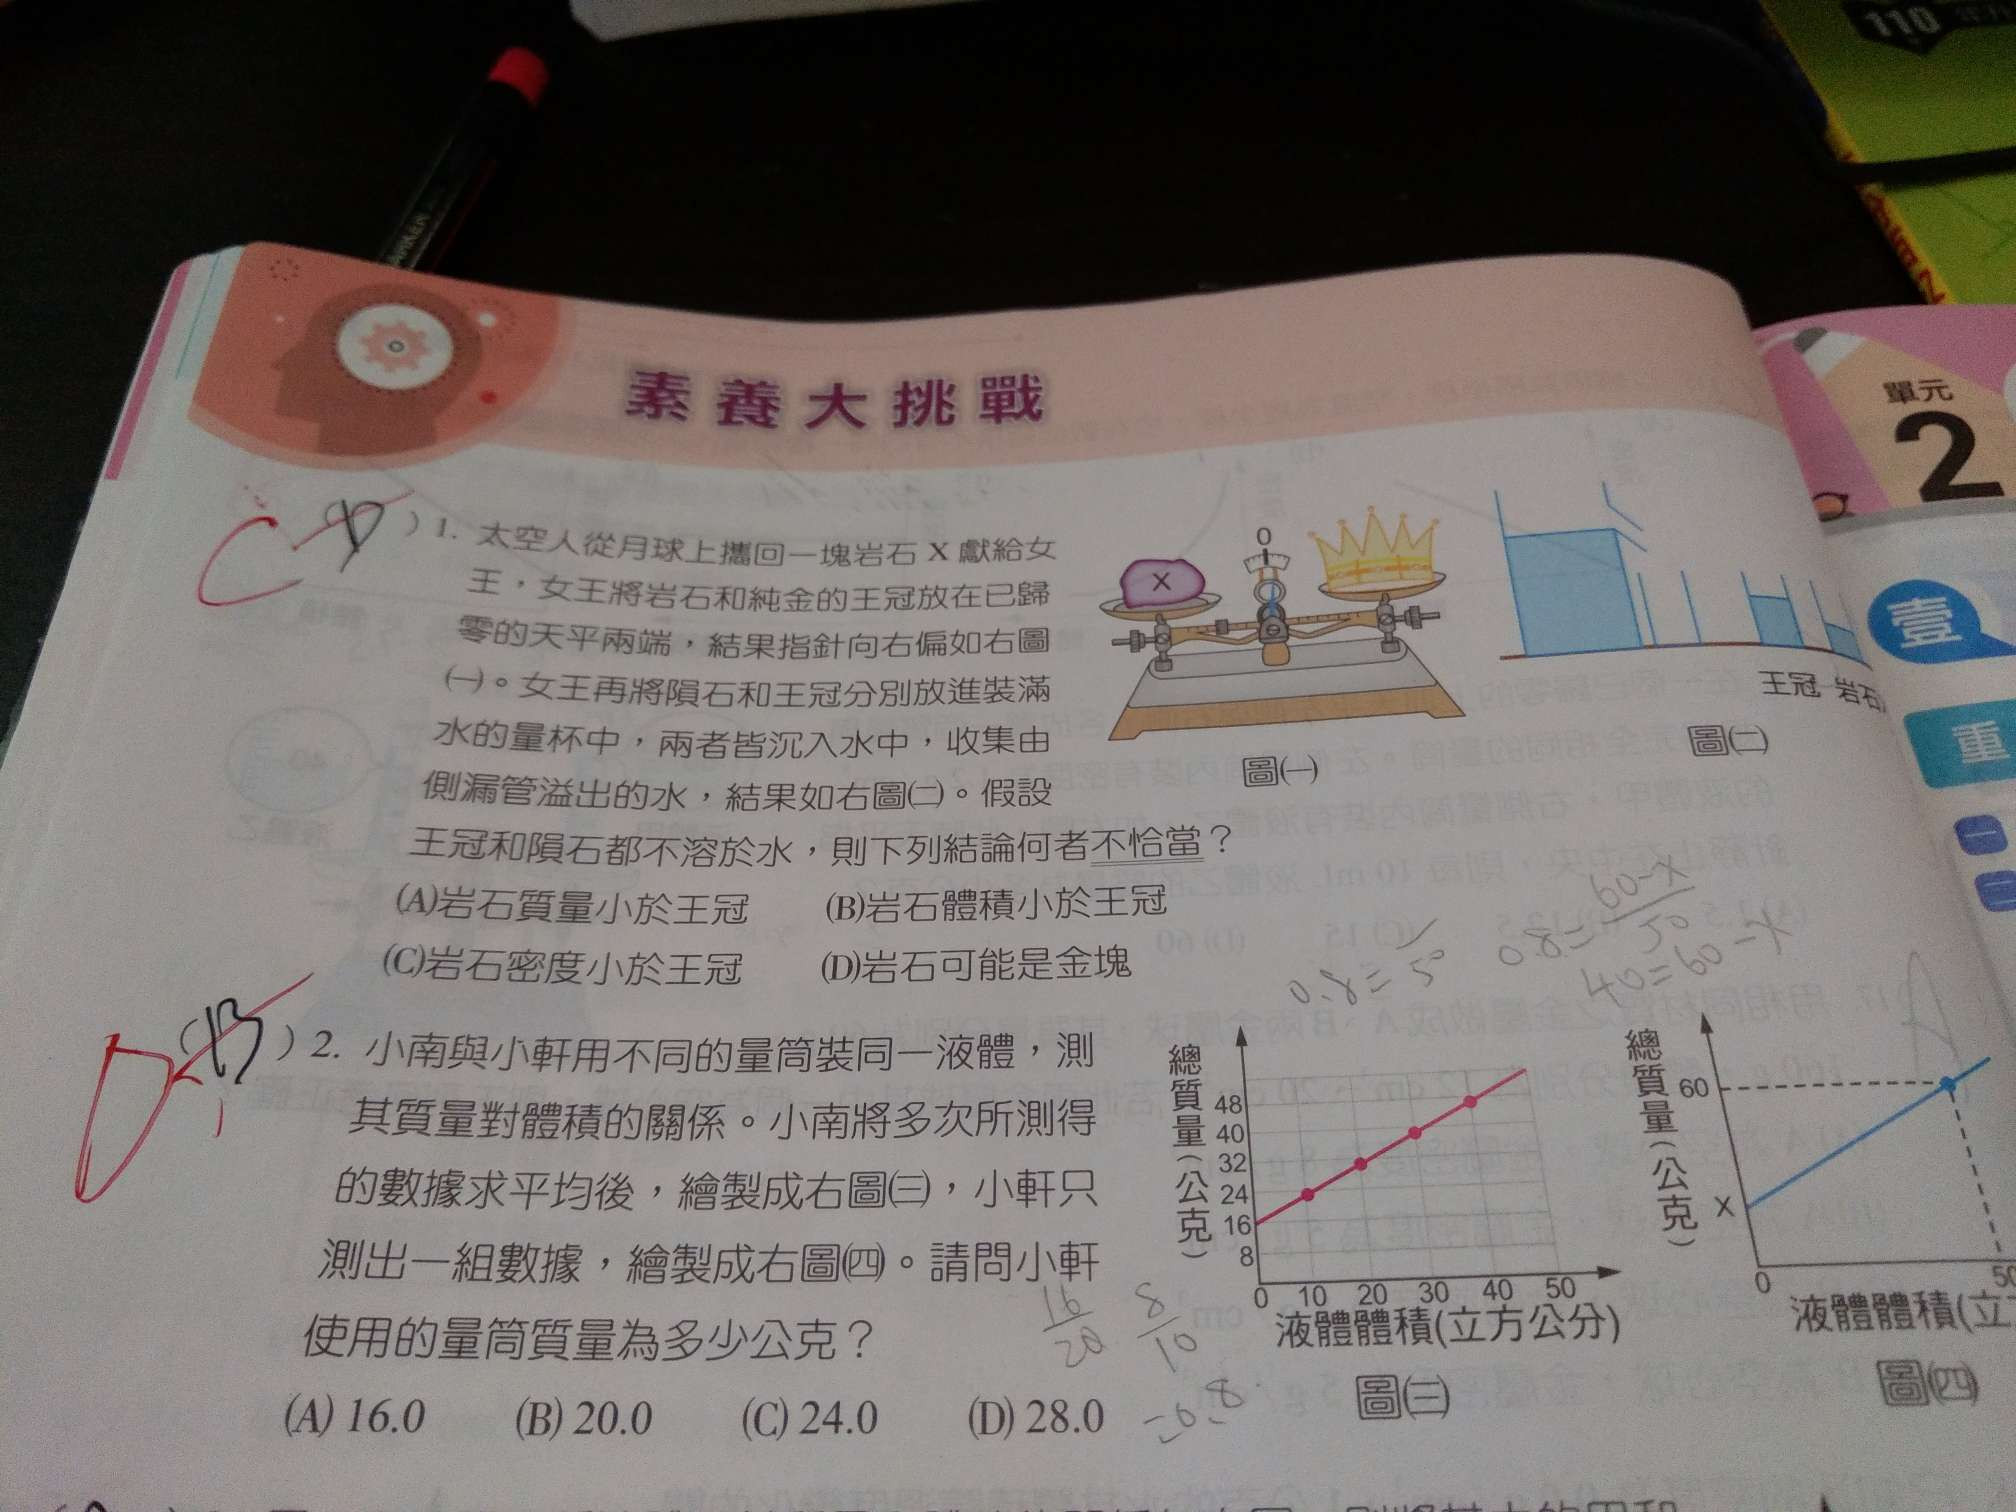 110
素養大挑戰
單元
2
壹
重
一
二
C (D ) 1. 太空人從月球上攜回一塊岩石 X 獻給女
王，女王將岩石和純金的王冠放在已歸
零的天平兩端，結果指針向右偏如右圖
㈠。女王再將隕石和王冠分別放進裝滿
水的量杯中，兩者皆沉入水中，收集由
側漏管溢出的水，結果如右圖㈡。假設
王冠和隕石都不溶於水，則下列結論何者不恰當？
(A)岩石質量小於王冠 (B)岩石體積小於王冠
(C)岩石密度小於王冠 (D)岩石可能是金塊
0
X
圖㈠
王冠 岩石
圖㈡
60-X
0.8=
50
40=60-X
0.8=50
D (B ) 2. 小南與小軒用不同的量筒裝同一液體，測
其質量對體積的關係。小南將多次所測得
的數據求平均後，繪製成右圖㈢，小軒只
測出一組數據，繪製成右圖㈣。請問小軒
使用的量筒質量為多少公克？
(A) 16.0 (B) 20.0 (C) 24.0 (D) 28.0
16
20
8
10
=0.8
總質量(公克)
48
40
32
24
16
8
0 10 20 30 40 50
液體體積(立方公分)
圖㈢
總質量(公克)
60
X
0 50
液體體積(立
圖㈣